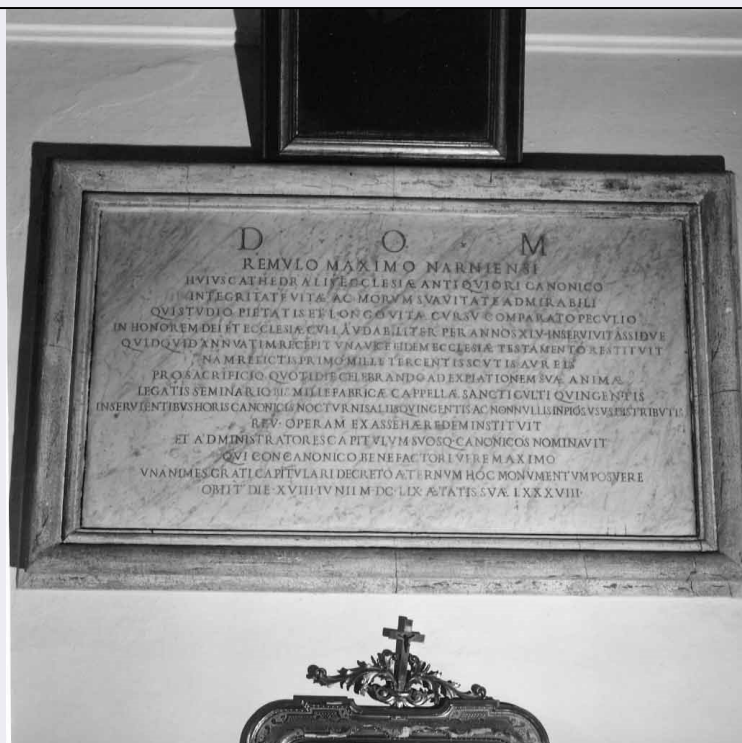 D · O · M
REMVLO MAXIMO NARNIENSI
HVIVS CATHEDRALIS ECCLESIÆ ANTIQVIORI CANONICO
INTEGRITATE VITÆ AC MORVM SVAVITATE ADMIRABILI
QVI STVDIO PIETATIS ET LONGO VITÆ CVRSV COMPARATO PECVLIO
IN HONOREM DEI ET ECCLESIÆ CVI LAVDABILITER PER ANNOS XLV INSERVIVIT ASSIDVE
QVIDQVID ANNVATIM RECEPIT VNA VICE EIDEM ECCLESIÆ TESTAMENTO RESTITVIT
NAM RELICTIS PRIMO MILLE TERCENTIS SCVTIS AVREIS
PRO SACRIFICIO QVOTIDIE CELEBRANDO AD EXPIATIONEM SVÆ ANIMÆ
LEGATIS SEMINARIO MILLE FABRICÆ CAPPELLÆ SANCTI QVINGENTIS
INSERVIENTIBVS HORIS CANONICIS NOCTVRNIS ALIIS QVINGENTIS AC NONNVLLIS IN PIOS VSVS DISTRIBVTIS
REV· OPERAM EX ASSE HÆREDEM INSTITVIT
ET ADMINISTRATORES CAPITVLVM SVOSQ· CANONICOS NOMINAVIT
QVI CONCANONICO BENEFACTORI VERE MAXIMO
VNANIMES GRATI CAPITVLARI DECRETO ÆTERNVM HOC MONVMENTVM POSVERE
OBIIT DIE · XVIII · IVNII M · DC · LIX · ÆTATIS SVÆ LXXXVIII ·